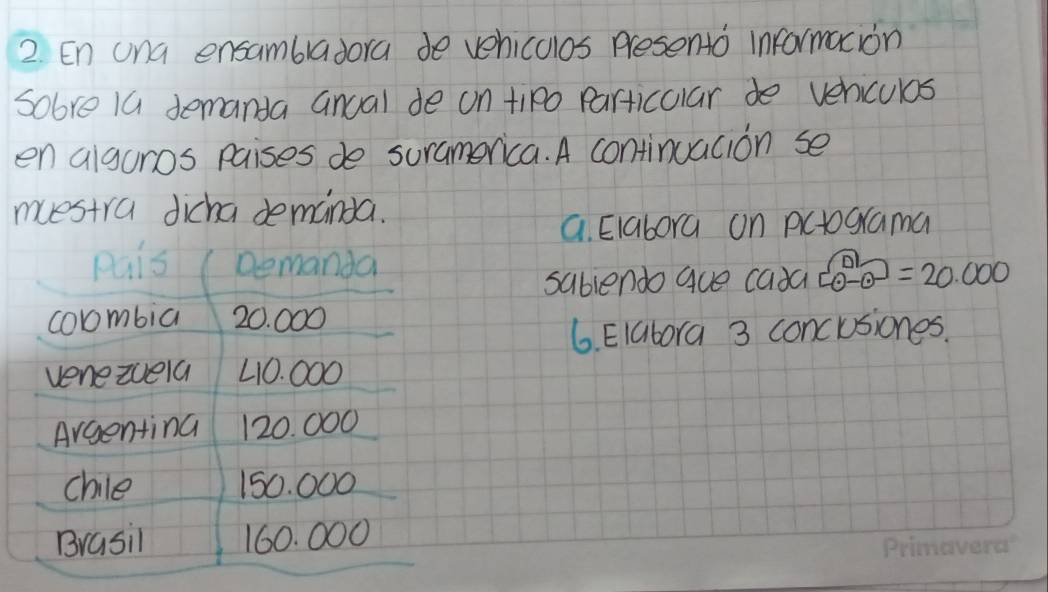 2. En una ensambladora de vehiculos presentó información
sobre la demanda anual de un tipo particular de vehiculos
en algunos paises de suramerica. A continuación se
muestra dicha demanda.
a. Elabora un pictograma
sabiendo que cada = 20.000
b. Elabora 3 conclusiones.
País Demanda
colombia 20.000
venezuela 40.000
Argentina 120.000
chile 150.000
Brasil 160.000
Primavera